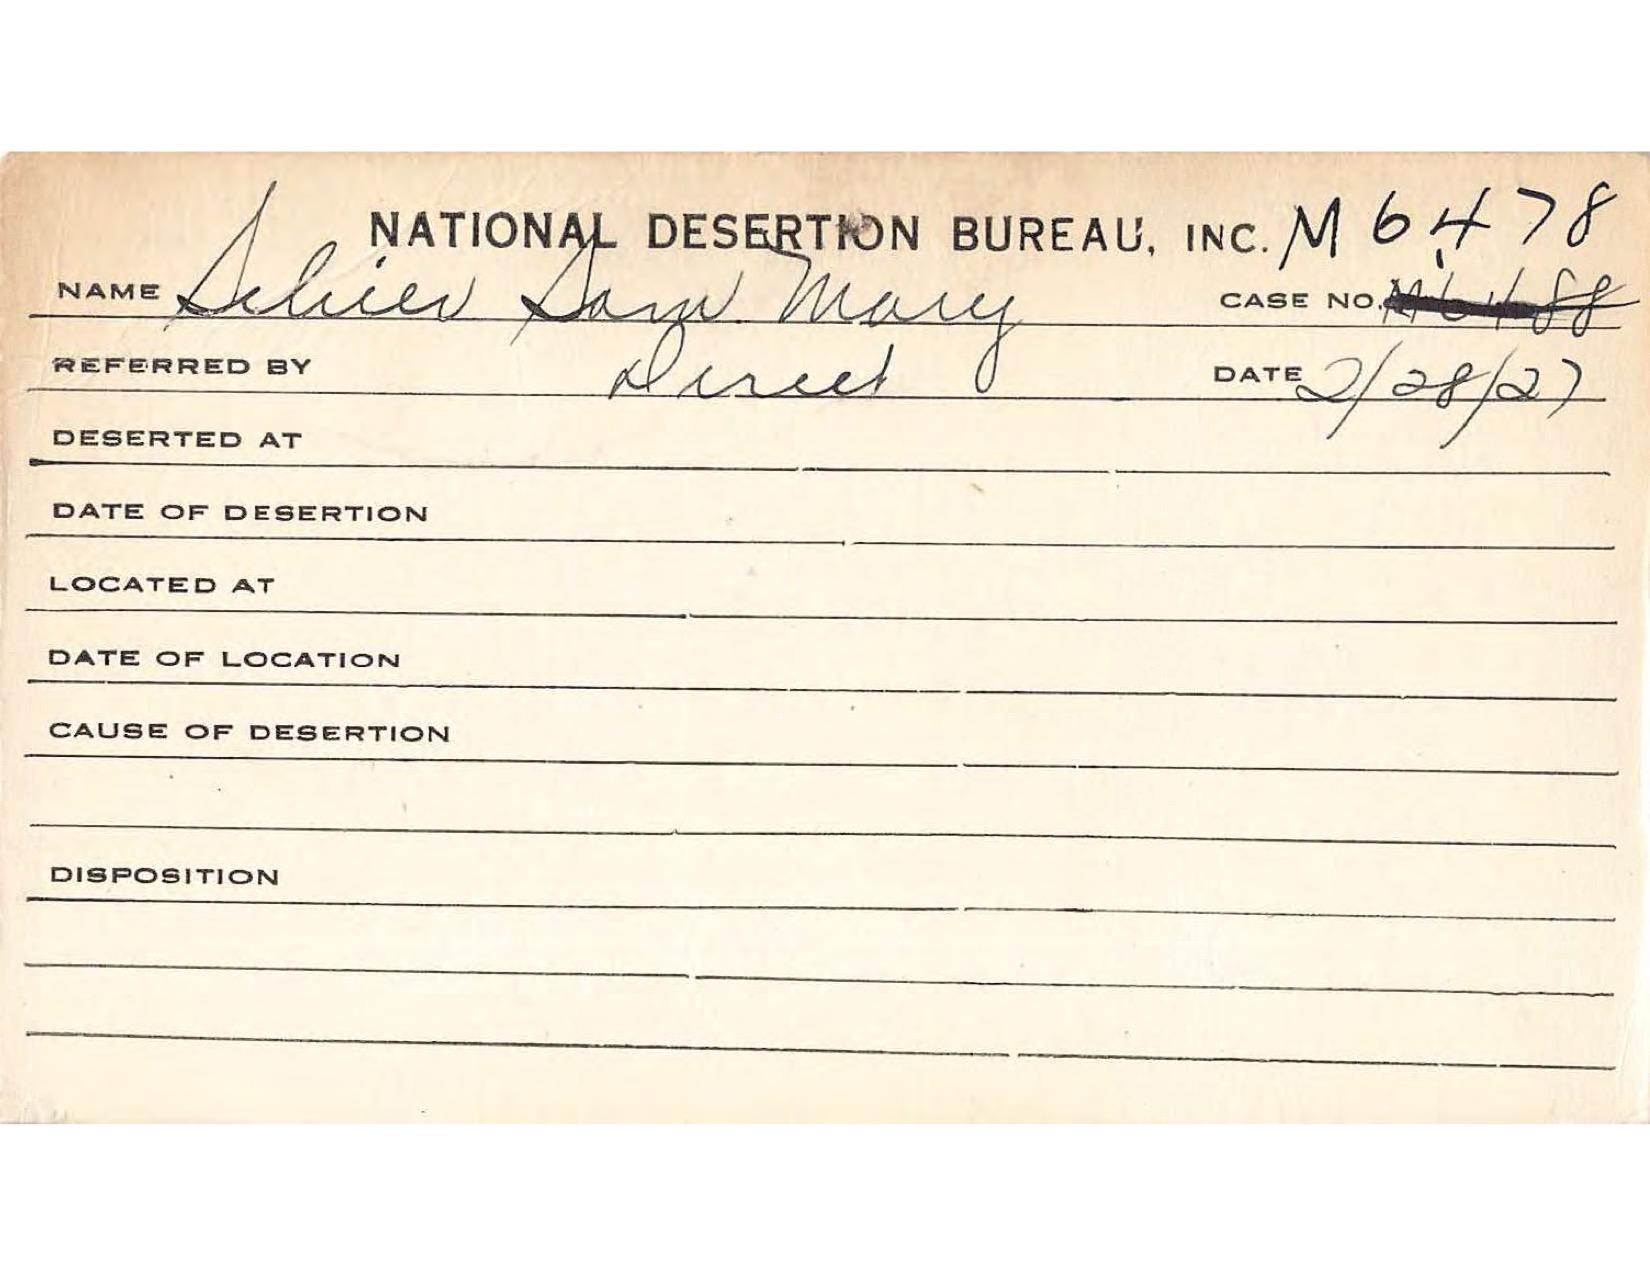 NATIONAL DESERTION BUREAU, INC. M 6478
NAME Schier Sam Mary CASE NO. M6488
REFERRED BY Direct DATE 2/28/27
DESERTED AT
DATE OF DESERTION
LOCATED AT
DATE OF LOCATION
CAUSE OF DESERTION
DISPOSITION